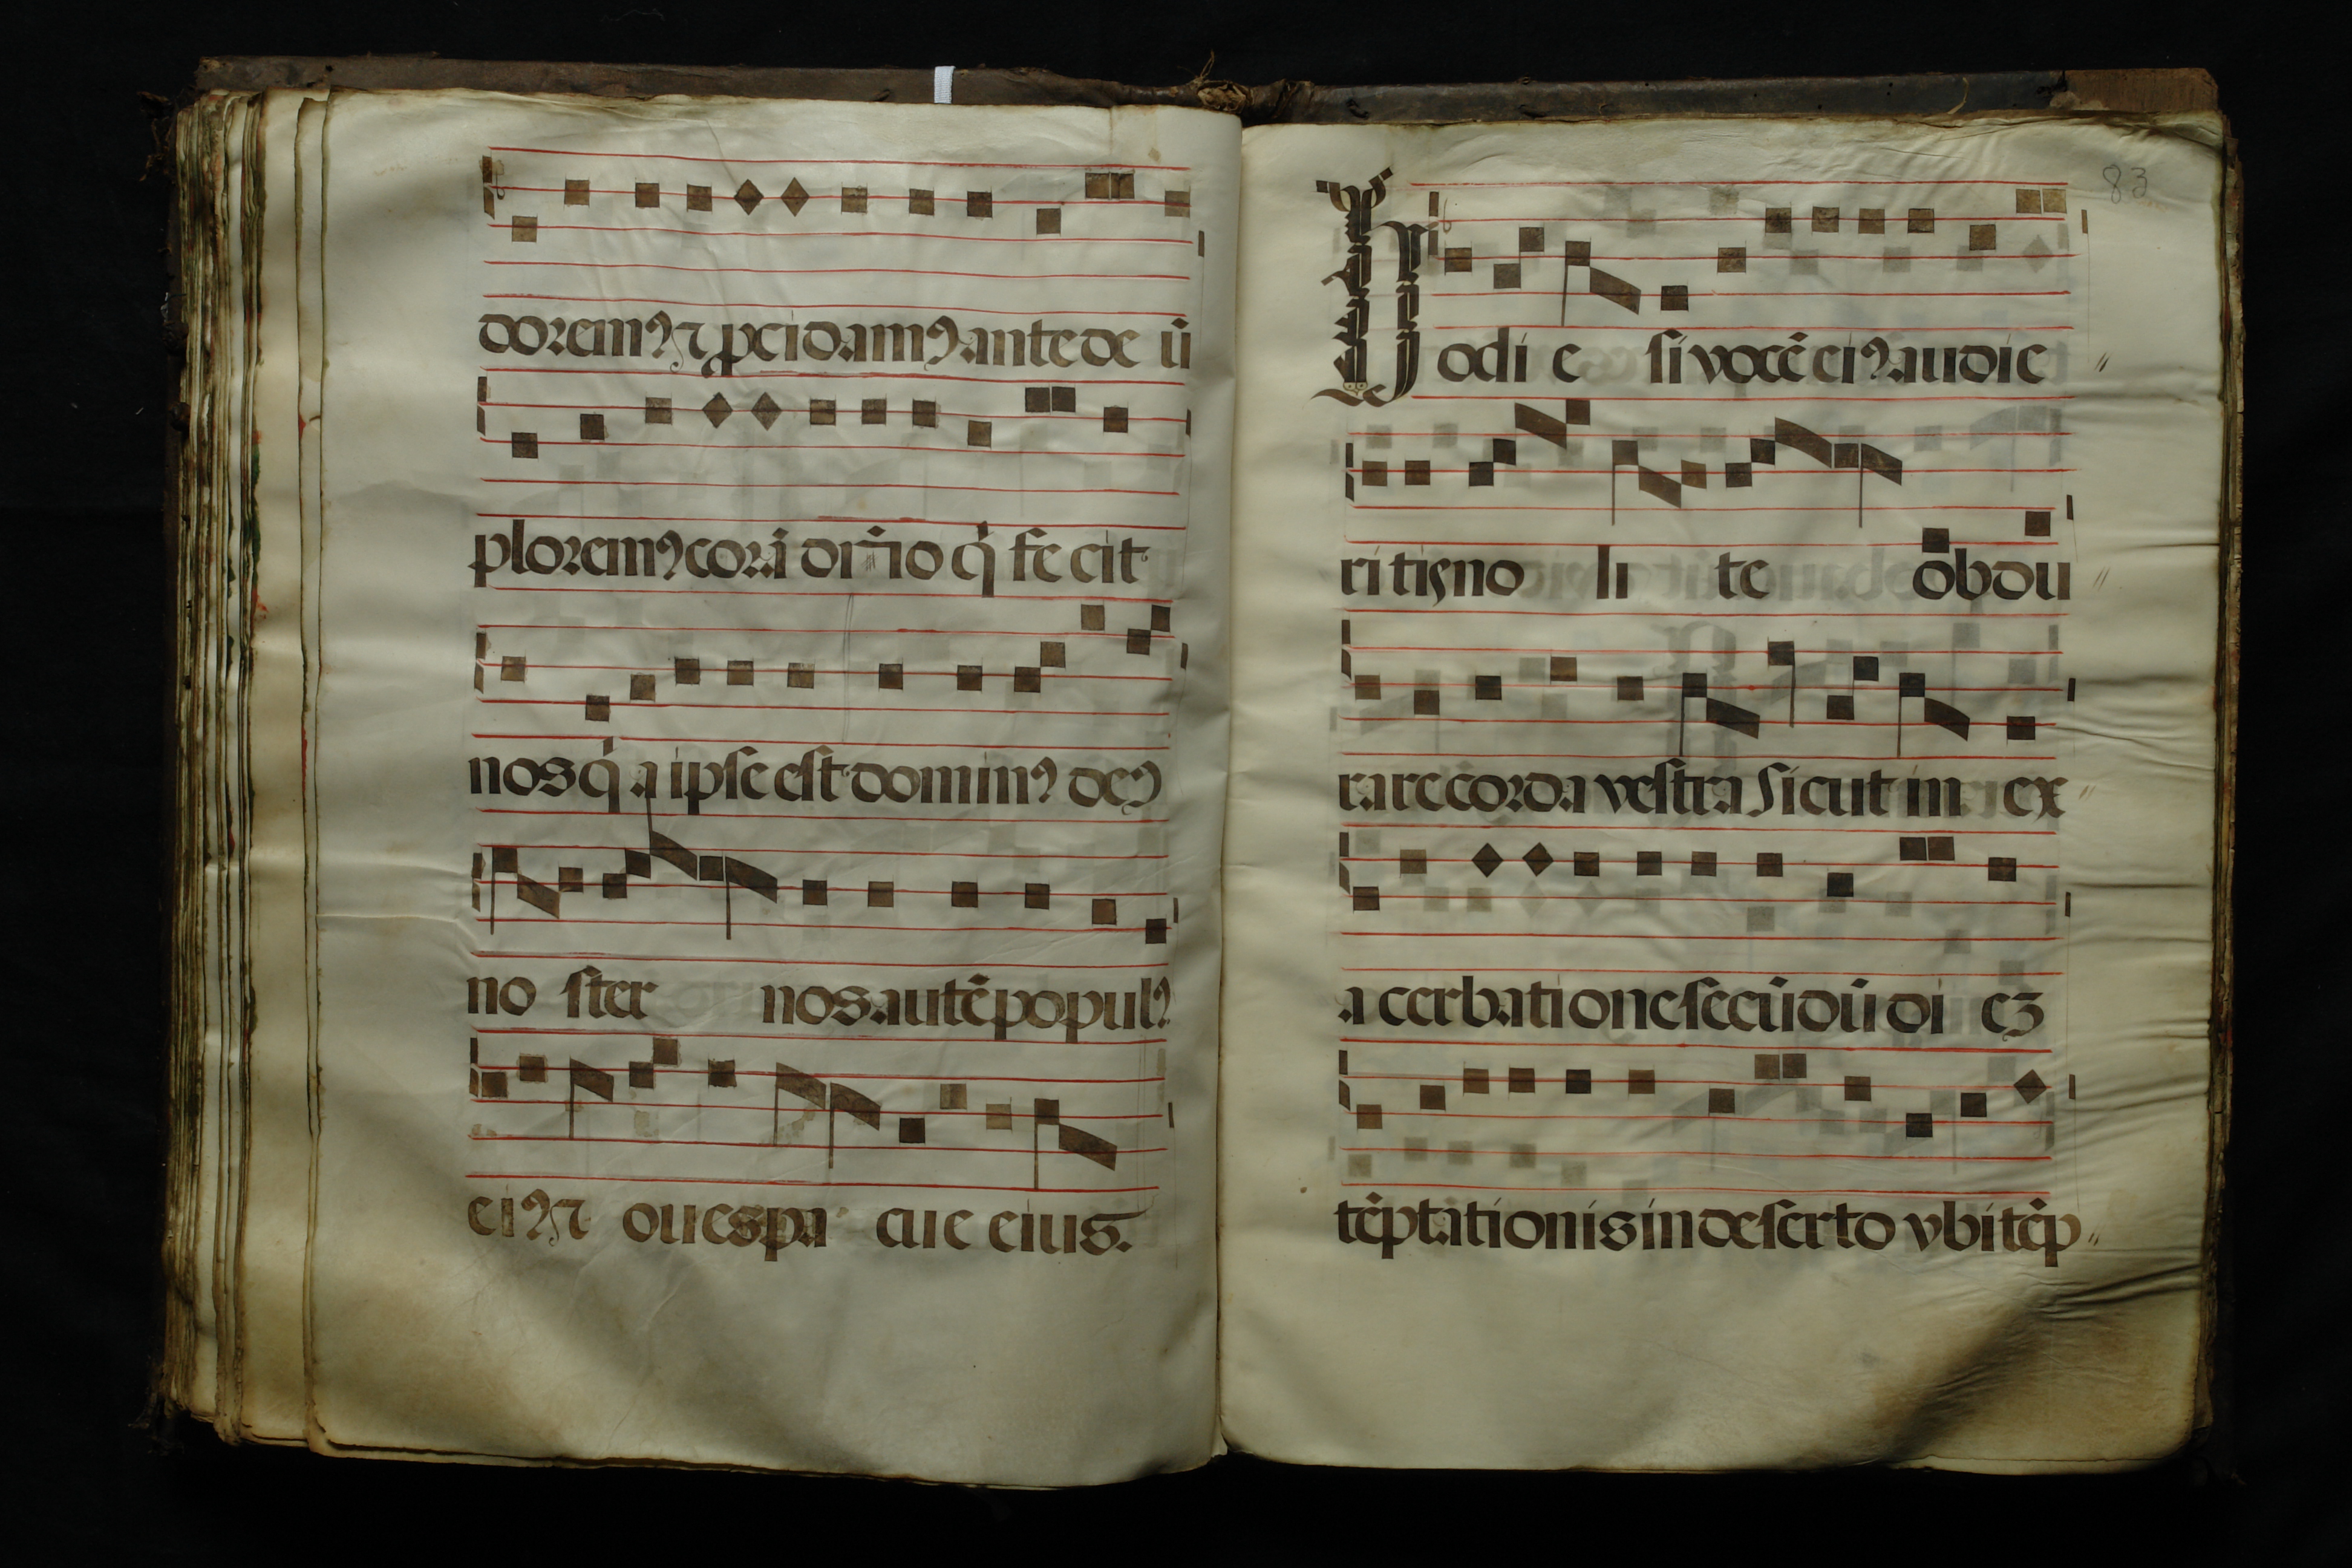 doremꝰ⁊ ꝓcidamꝰ ante de ū
ploremꝰ corā dn̄io q̇ fe cit
nos q̇ a ipse est dominꝰ deꝰ
no ster nos autē populꝰ
eiꝰ⁊ oues pa cue eius.
83
Hodi e si vocē eiꝰ audie
ri tis no li te obdu
rare corda vestra Sicut in ex
a cerbatione secūdū di eʒ
tēptationis in deserto vbi tēp